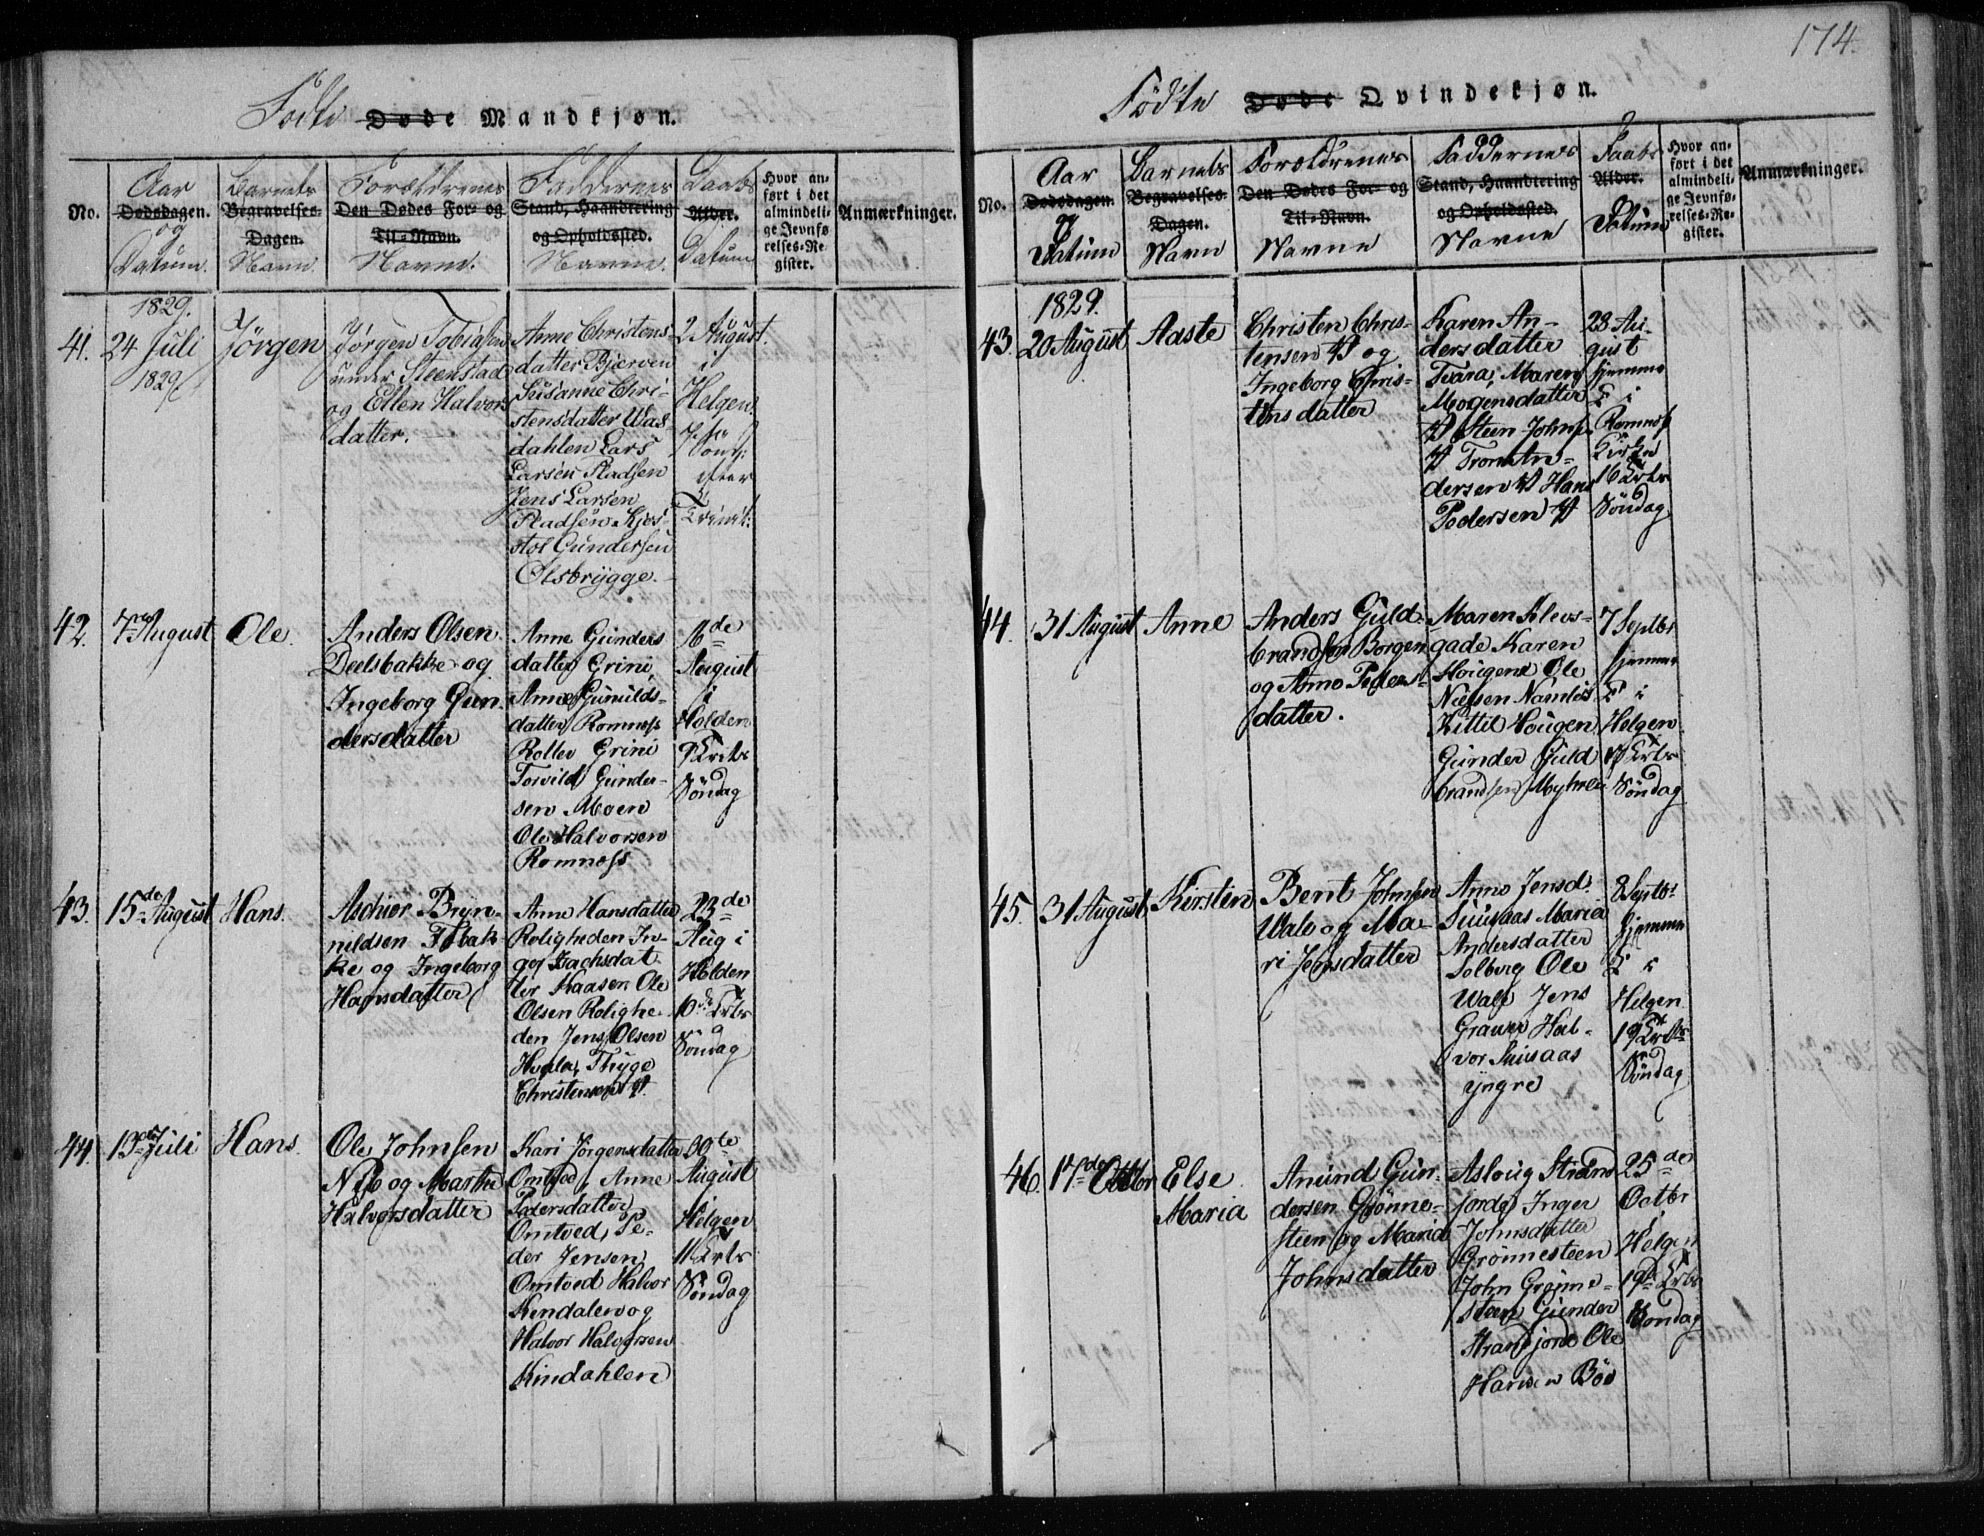 174.
Födte Døde Mandkjøn.
No.
Aar
Dødsdagen.
og
Datum.
Barnets
Begravelses-
Dagen.
Navn.
Forældrenes
Den Dødes For- og
Til-Navn.
Navne.
Faddernes
Stand, Haandtering
og Opholdssted.
Navne.
Daabs
Alder.
Datum
Hvor an-
ført i det
almindeli-
ge Jevnfø
relses-Re
gister.
Anmærkninger.
41.
1829.
24 Juli
1829
Jörgen
Jörgen Tobiassen
under Steenstad
og Ellen Halvors
datter.
Anne Christens-
datter Bjerven
Susanne Chri-
stensdatter Was-
dahlen Lars
Larsen Pladsen
Jens Larsen
Pladsen Kjøs-
stol Gundersen
Olsbrygge.
2 August
i
Helgen
7de
Sönd:
efter
Trinit:
42.
7de August
Ole.
Anders Olsen
Deelsbakke og
Ingeborg Gun
dersdatter
Anne Gunders
datter Grini,
Anne Gunilds-
datter Romness
Rollev Grini
Torvild Gunder-
sen Moen
Ole Halvorsen
Romness
16de
August
i
Holden
9 Trtbs
Söndag
43.
15de August
Hans.
Aschier Bryn-
nildsen Fobak-
ke og Ingeborg
Hansdatter
Anne Hansdatter
Roligheden In-
ger Isachsdat
ter Kaasen Ole
Olsen Rolighe-
den Jens Olsen
Hvala, Thyge
Christensen
23de
Aug i
Holden
10de Trtbs
Söndag
44.
13de Juli
Hans.
Ole Johnsen
Næs og Marthe
Halvorsdatter
Kari Jörgensdatter
Omtved, Anne
Pedersdatter
Omtved, Pe-
der Jensen
Omtved Halvor
Kindalen og
Halvor Halvorsen
Kindahlen
30te
August
i
Helgen
11 Trtbs
Söndag
Födte Døde Qvindekjøn.
No.
Aar
Dødsdagen.
og
Datum
Barnets
Begravelses-
Dagen.
Navn
Forældrenes
Den Dødes For- og
Til-Navn.
Navne
Faddernes
Stand, Haandtering
og Opholdssted.
Navne
Daabs
Alder.
Datum
Hvor an-
ført i det
almindeli-
ge Jevnfø-
relses-Re-
gister.
Anmærkninger.
43.
1829.
20 August
Aaste
Christen Chris-
tensen og
Ingeborg Chris-
tensdatter
Karen An-
dersdatter
Tvara, Maren
Mogensdatter
Steen Johns.
Tron An-
dersen Hans
Pedersen
28 Au-
gust
hjemme
i
Romness
Kirke
16 Trtbs
Söndag
44.
31 August
Anne
Anders Guld-
brandsen Borgen
og Anne Peders-
datter.
Maren Klevs-
gade Karen
Hougen Ole
Nielsen Namløs
Kittil Hougen
Gunder Guld
brandsen Myhre
7 Septbr
hjemme
i
Helgen
17 Trtbs
Söndag
45.
31 August
Kirsten
Bent Johnsen
Wale og Ma-
ri Jensdatter
Anne Jensd.
Suusaas Maria
Andersdatter
Solberg Ole
Wale Jens
Graver Hal-
vor Suusaas
yngre
8 Septbr
hjemme
i
Helgen
19 Trtbs
Söndag
46.
17de Octbr
Else
Maria
Anund Gun-
dersen Grønne-
steen og Maria
Johnsdatter
Asloug Strand
jorde, Inger
Johnsdatter
Grønnesteen
John Grønne-
steen Gunder
Strandjorde Ole
Hansen Böe
25de
Octbr
i
Helgen
19de Trtbs
Söndag